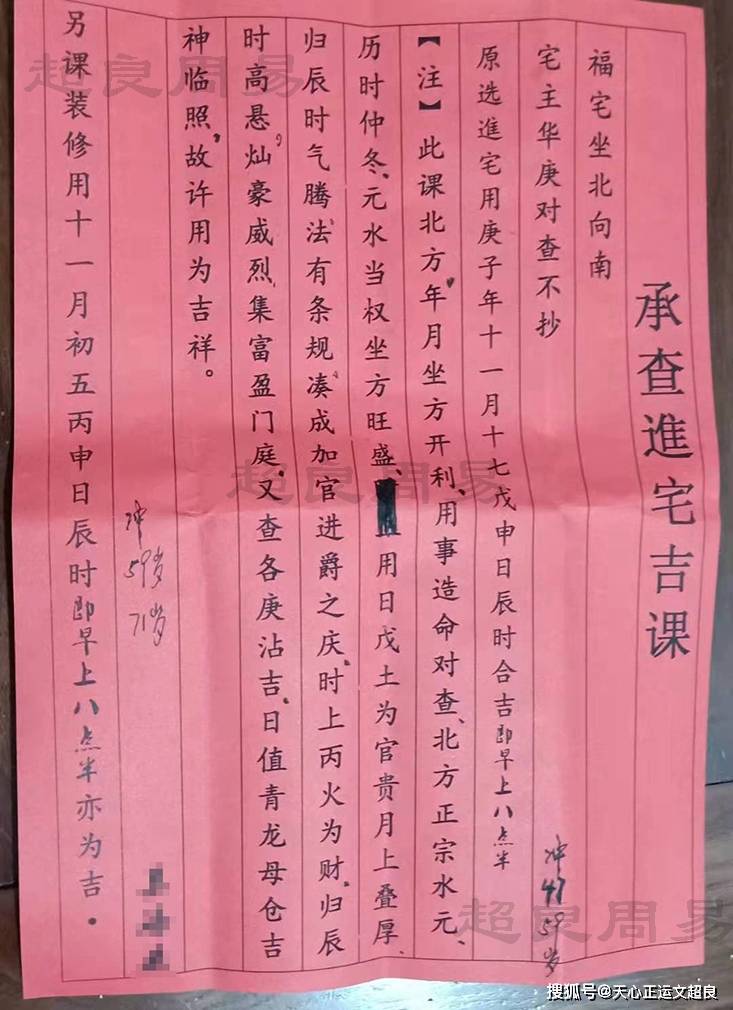 承查進宅吉课
福宅坐北向南
宅主华庚对查不抄
原选進宅用庚子年十一月十七戊申日辰时合吉即早上八点半
冲47 59岁
【注】此课北方年月坐方开利、用事造命对查、北方正宗水元、
历时仲冬、元水当权坐方旺盛、用日戊土为官贵月上叠厚、
归辰时气腾法、有条规、凑成加官进爵之庆、时上丙火为财、归辰
时高悬、灿豪威烈、集富盈门庭、又查各庚沾吉、日值青龙母仓吉
神临照、故许用为吉祥。
冲59岁 71岁
另课装修用十一月初五丙申日辰时即早上八点半亦为吉.
超良周易
超良周易
超良周易
搜狐号@天心正运文超良